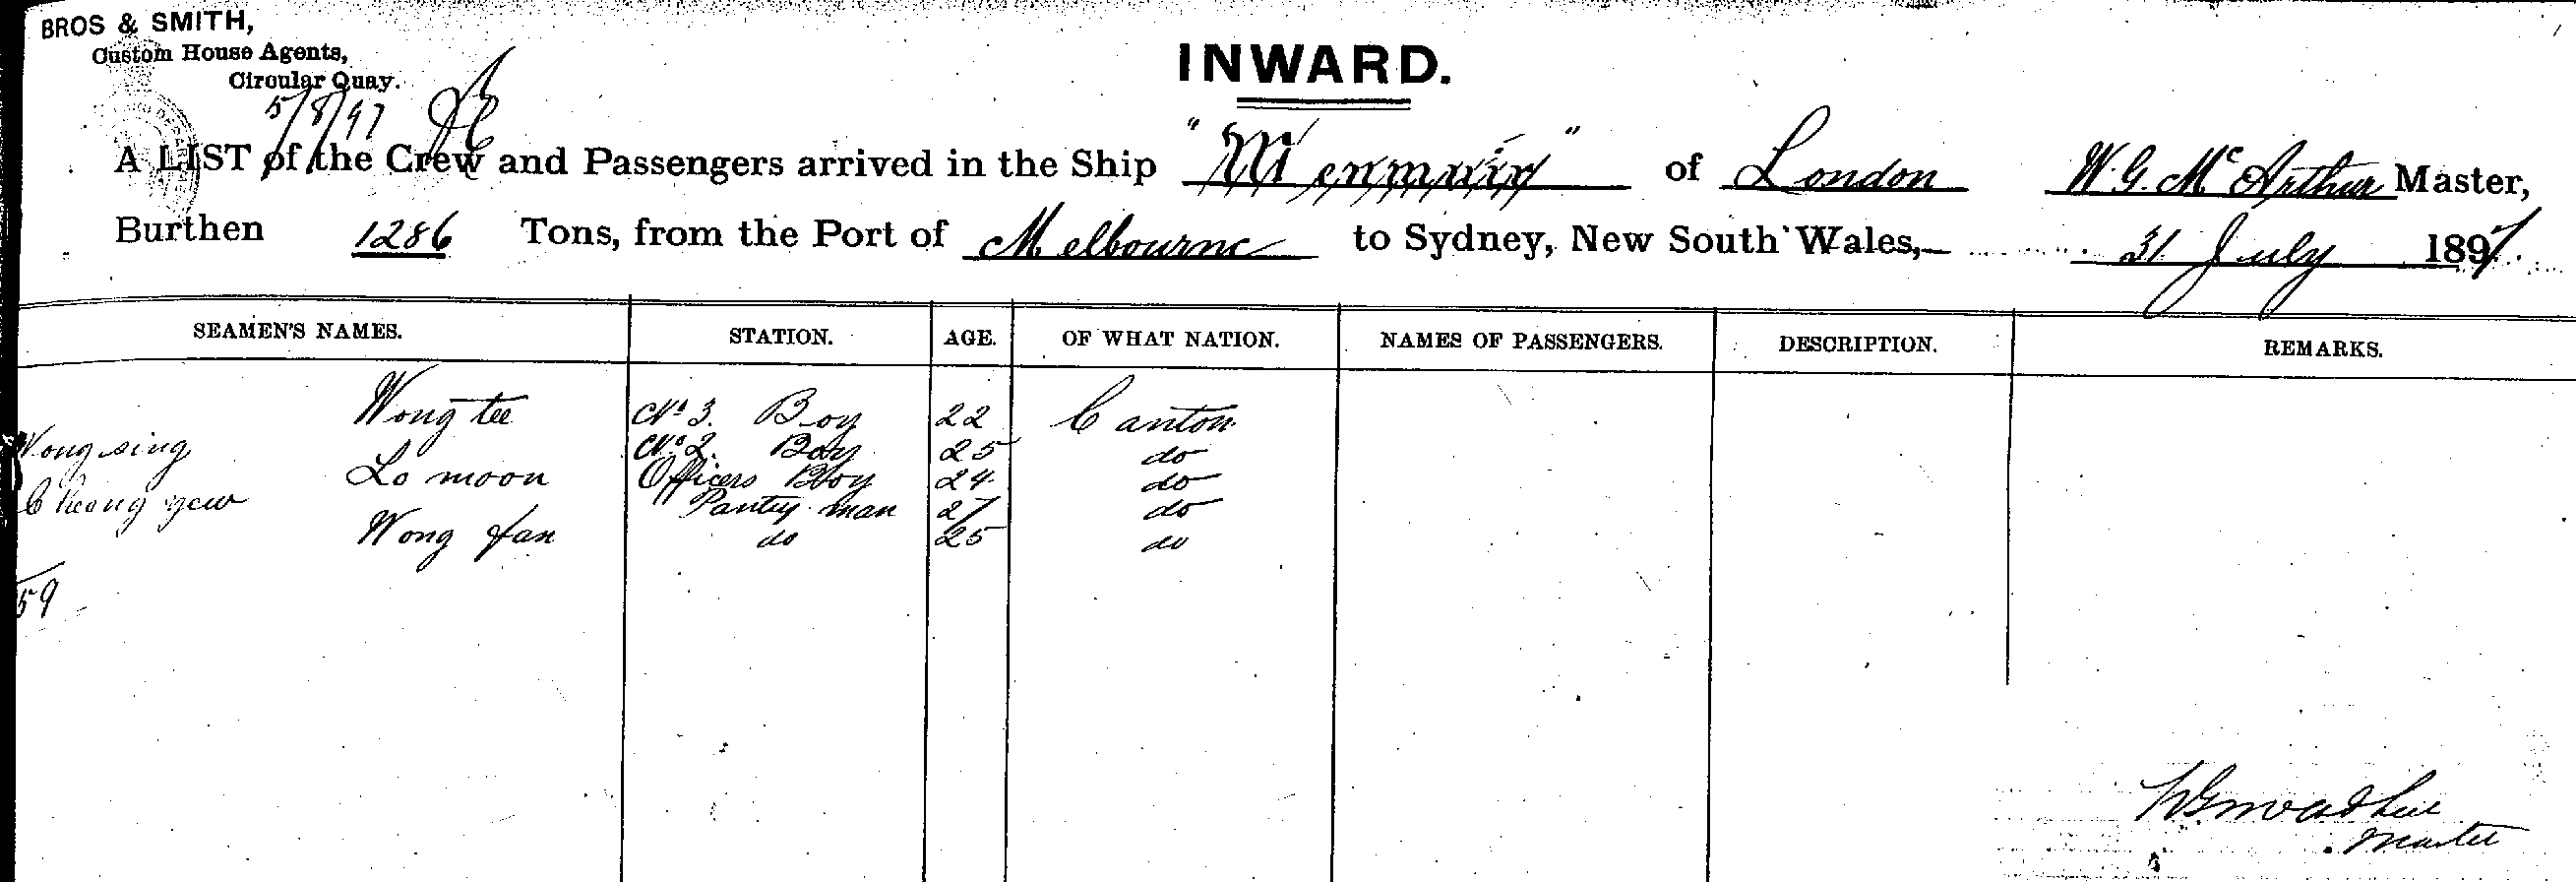 BROS & SMITH,
Custom House Agents,
Circular Quay.
5/8/97
INWARD.
A LIST of the Crew and Passengers arrived in the Ship "Menmuir" of London W. G. McArthur Master,
Burthen 1286 Tons, from the Port of Melbourne to Sydney, New South Wales, 31 July 1897.
SEAMEN'S NAMES. STATION. AGE. OF WHAT NATION. NAMES OF PASSENGERS. DESCRIPTION. REMARKS.
Wong tee No 3. Boy 22 Canton
Wong sing No 2. Boy 25 do
Lo moon Officers Boy 24 do
Cheong yew Pantry man 27 do
Wong fan do 25 do
59
WGMcArthur
Master